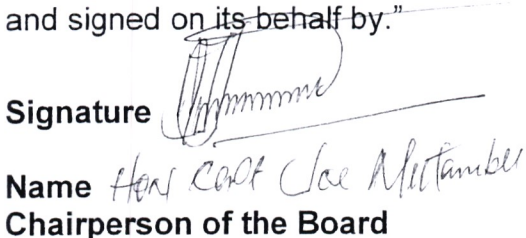 and signed on its behalf by.”
Signature
Name Hon Capt Joe Mutambu
Chairperson of the Board